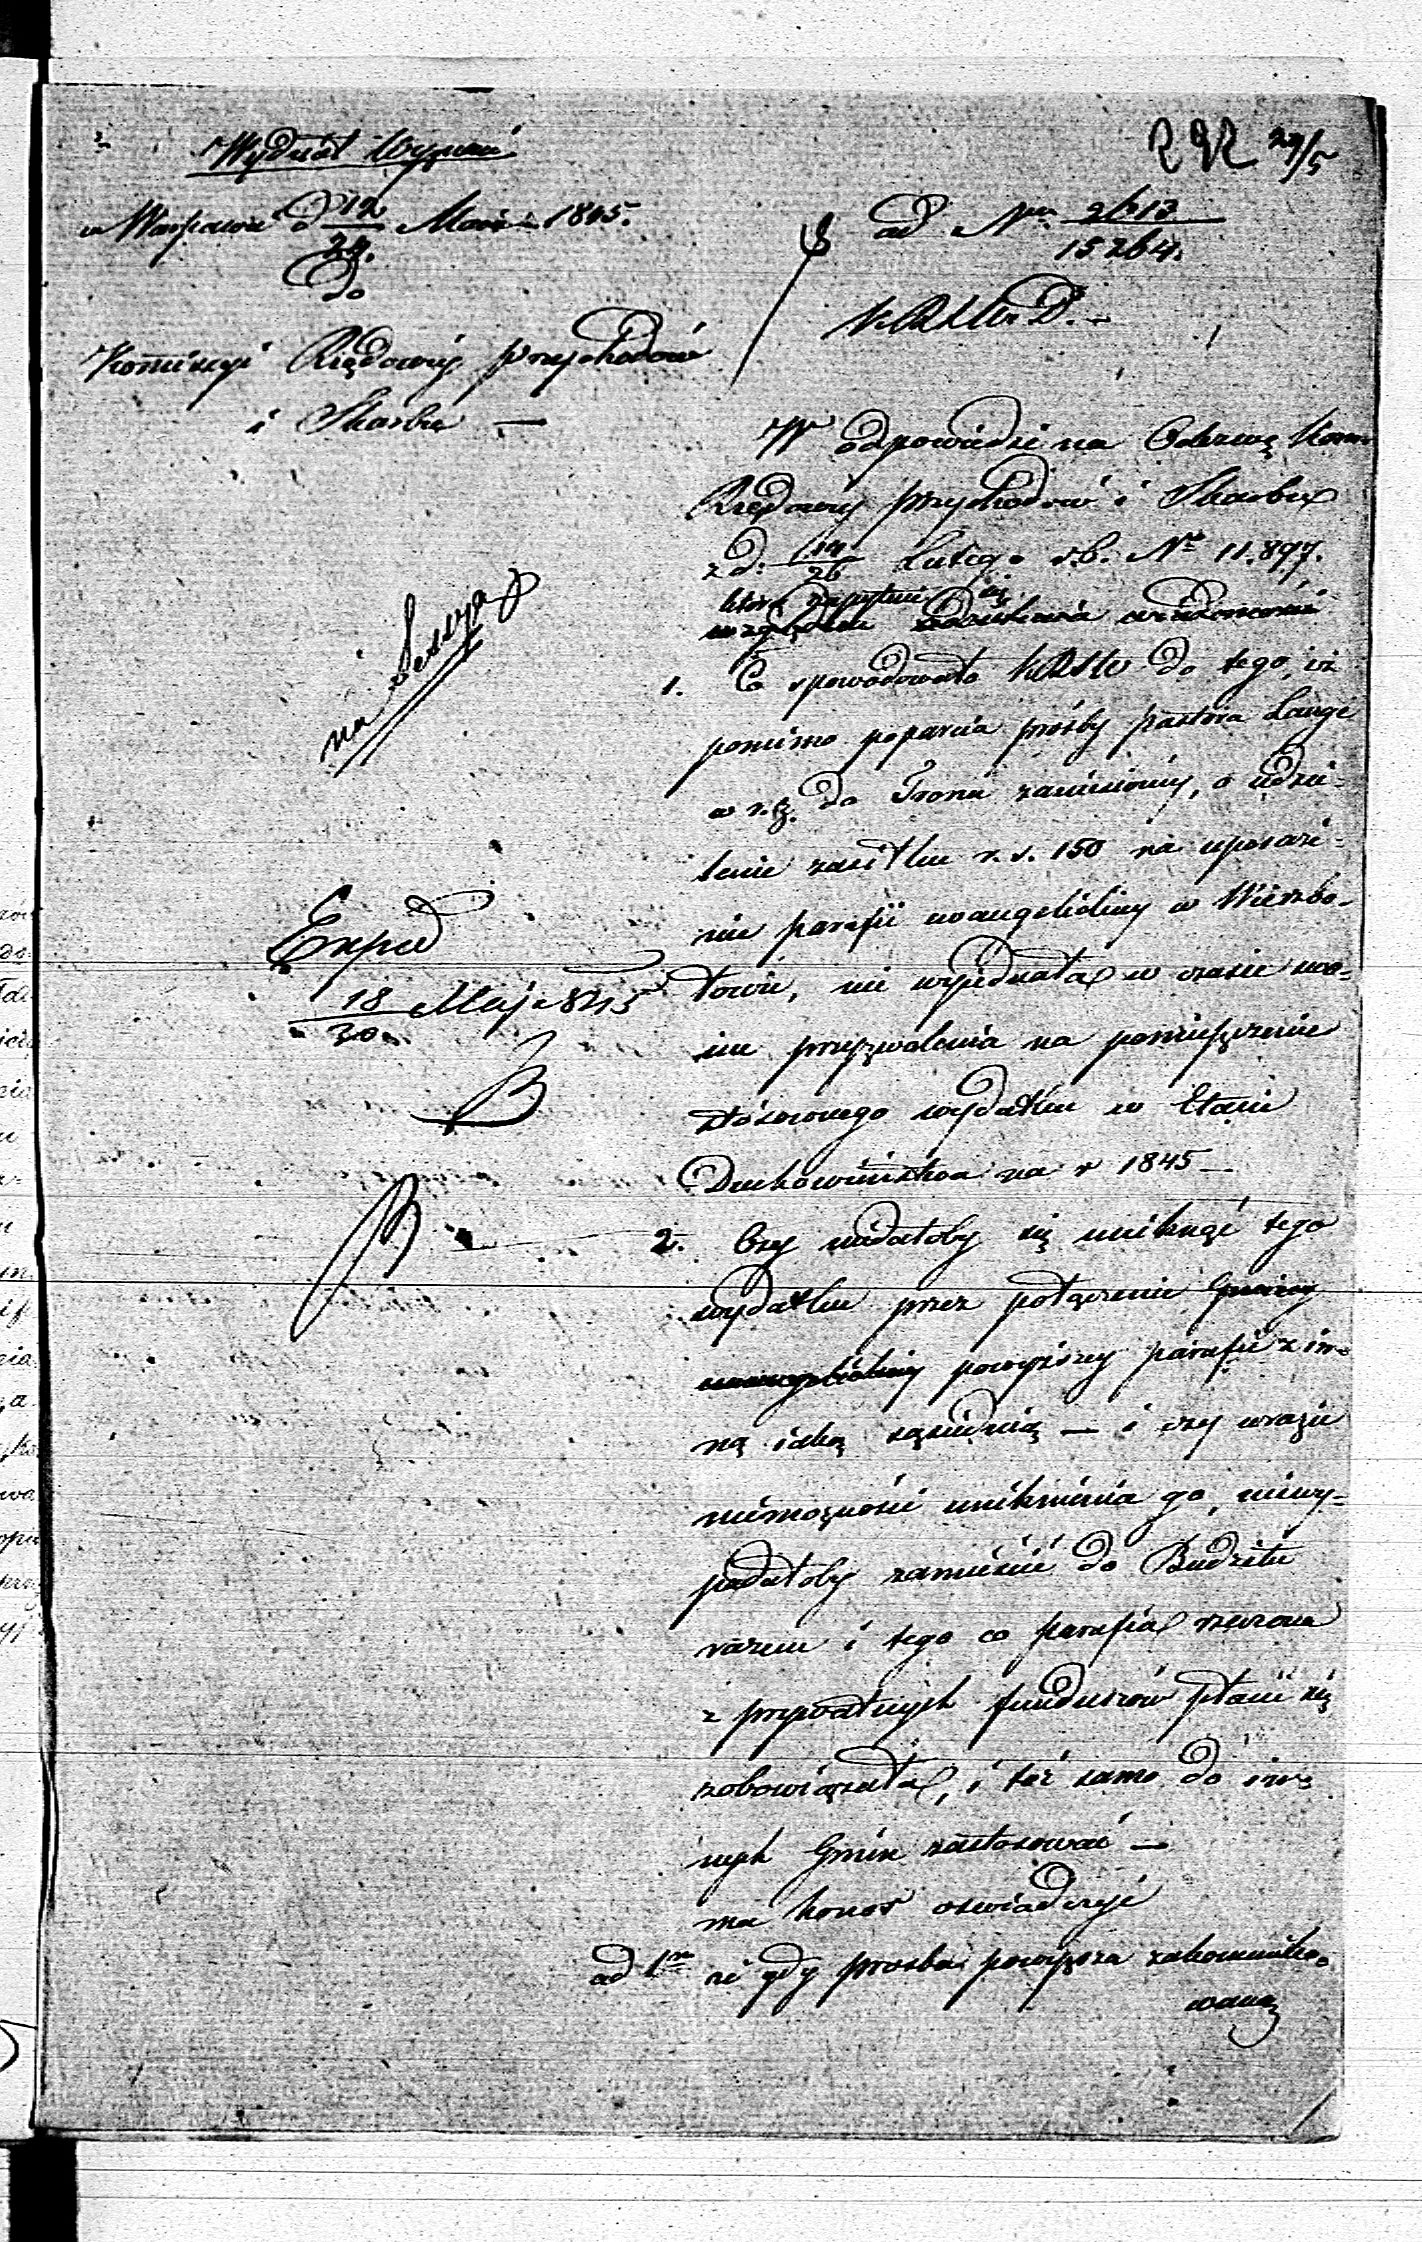 292 29/5
Wydział Wyznań
w Warszawie d 12/24. Marca 1845.
do
Kommissyi Rządowéj Przychodów
i Skarbu —
ad Nrm 2613/15264.
K.R.S.W. D. —
na Sessyą
Exped
18/30 Maj 845
W odpowiedzi na Odezwę Komm
Rządowéj Przychodów i Skarbu
z d. 14/26 Lutego r.b. No 11.897.
która zapytuie się
względem
1. Co spowodowało K.R.S.W. do tego, iż
pomimo poparcia prośby Pastora Lange
w r. z. do Tronu zaniesionéj, o udzie-
lenie zasiłku r. s. 150 na uposaże-
nie parafii ewangelickiej w Wierzbo-
łowie, nie wyjednała w czasie swo-
im przyzwolenia na pomieszczenie
stósownego wydatku w Etacie
Duchowieństwa na r 1845 —
2. Czy nie dałoby się uniknąć tego
wydatku przez połączenie Gminy
ewangelickiej powyższey parafii z in-
ną iaką sąsiednią — i czy w razie
niemożności uniknienia go, niewy-
padałoby zamieścić do Budżetu
razem i tego co parafia rzeczona
z prywatnych funduszów płacić się
zobowiązała, i toż samo do in-
nych Gmin zastosować —
ma honor oświadczyć
ad 1m że gdy prośba powyższa zakommuniko-
waną